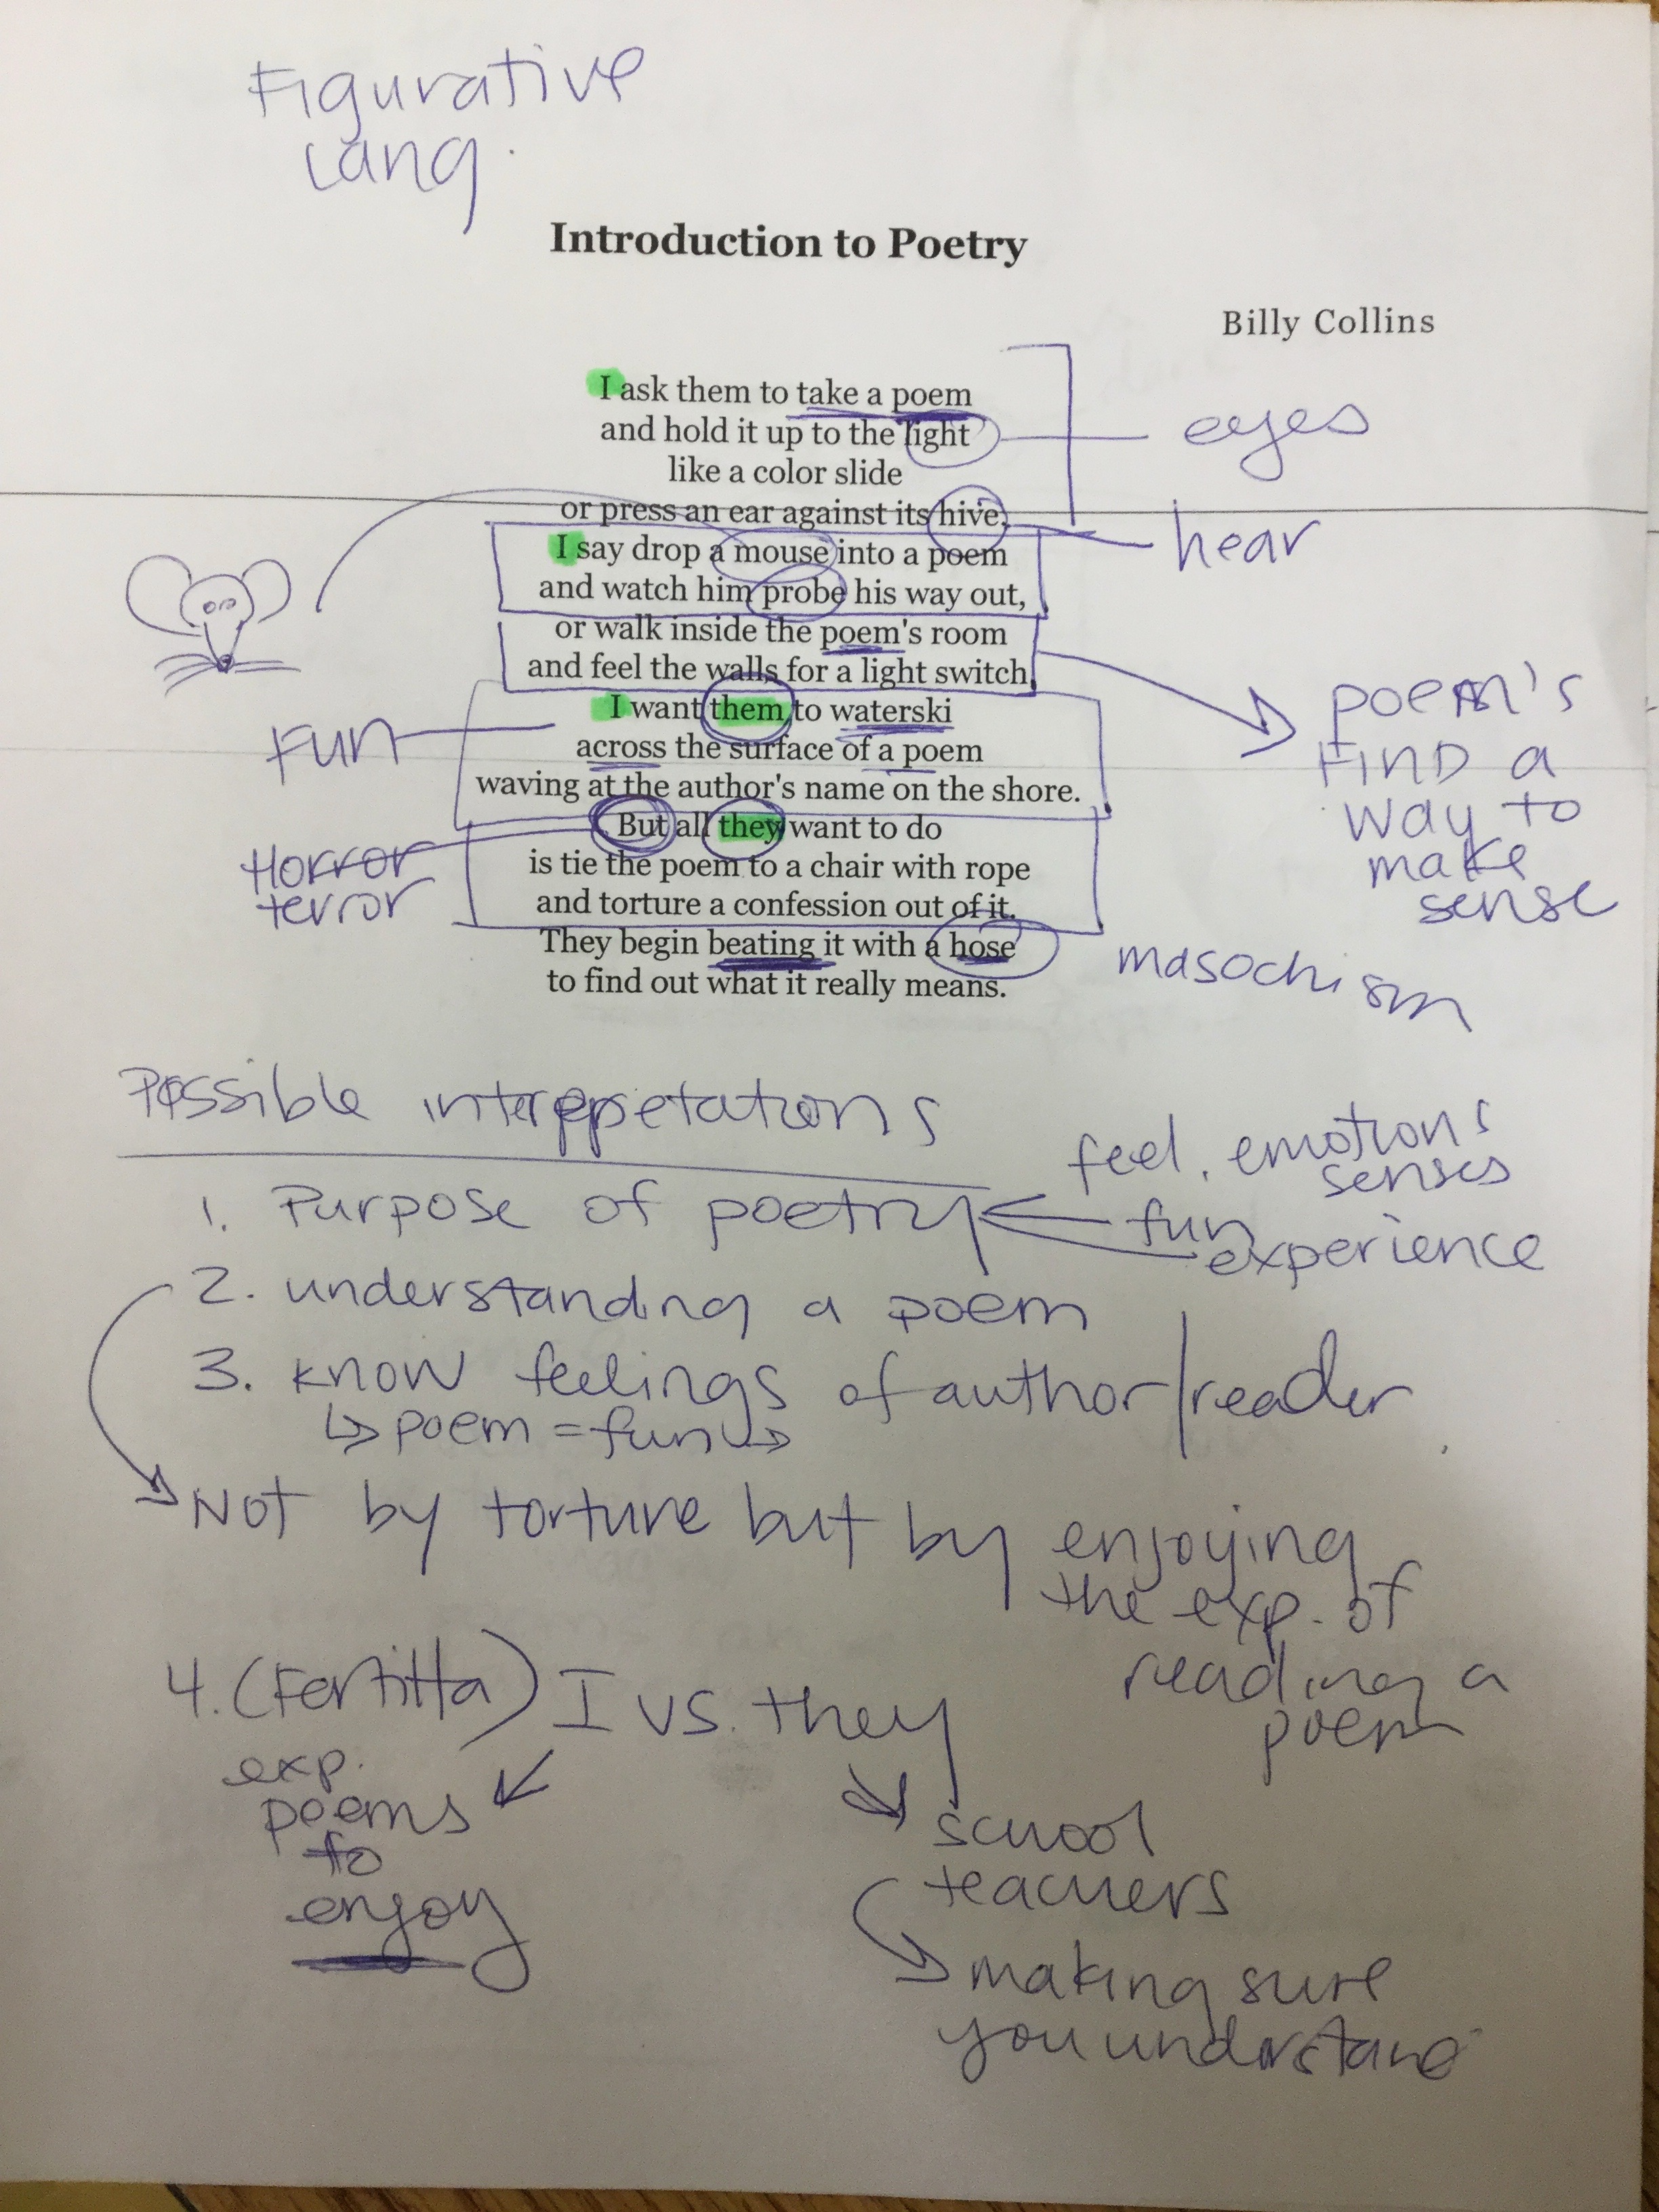 Figurative
Lang.
Introduction to Poetry
Billy Collins
I ask them to take a poem
and hold it up to the light
like a color slide
or press an ear against its hive.
I say drop a mouse into a poem
and watch him probe his way out,
or walk inside the poem's room
and feel the walls for a light switch.
I want them to waterski
across the surface of a poem
waving at the author's name on the shore.
But all they want to do
is tie the poem to a chair with rope
and torture a confession out of it.
They begin beating it with a hose
to find out what it really means.
eyes
hear
poem's
FIND a
way to
make
sense
Fun
Horror
terror
masochism
Possible interppretations
1. Purpose of poetry
feel, emotions
senses
fun
experience
2. understanding a poem
3. know feelings of author/reader
↳ poem = fun ↳
Not by torture but by enjoying
the exp. of
reading a
poem
4. (Fertitta) I vs. they
exp.
poems
to
enjoy
school
teachers
making sure
you understand